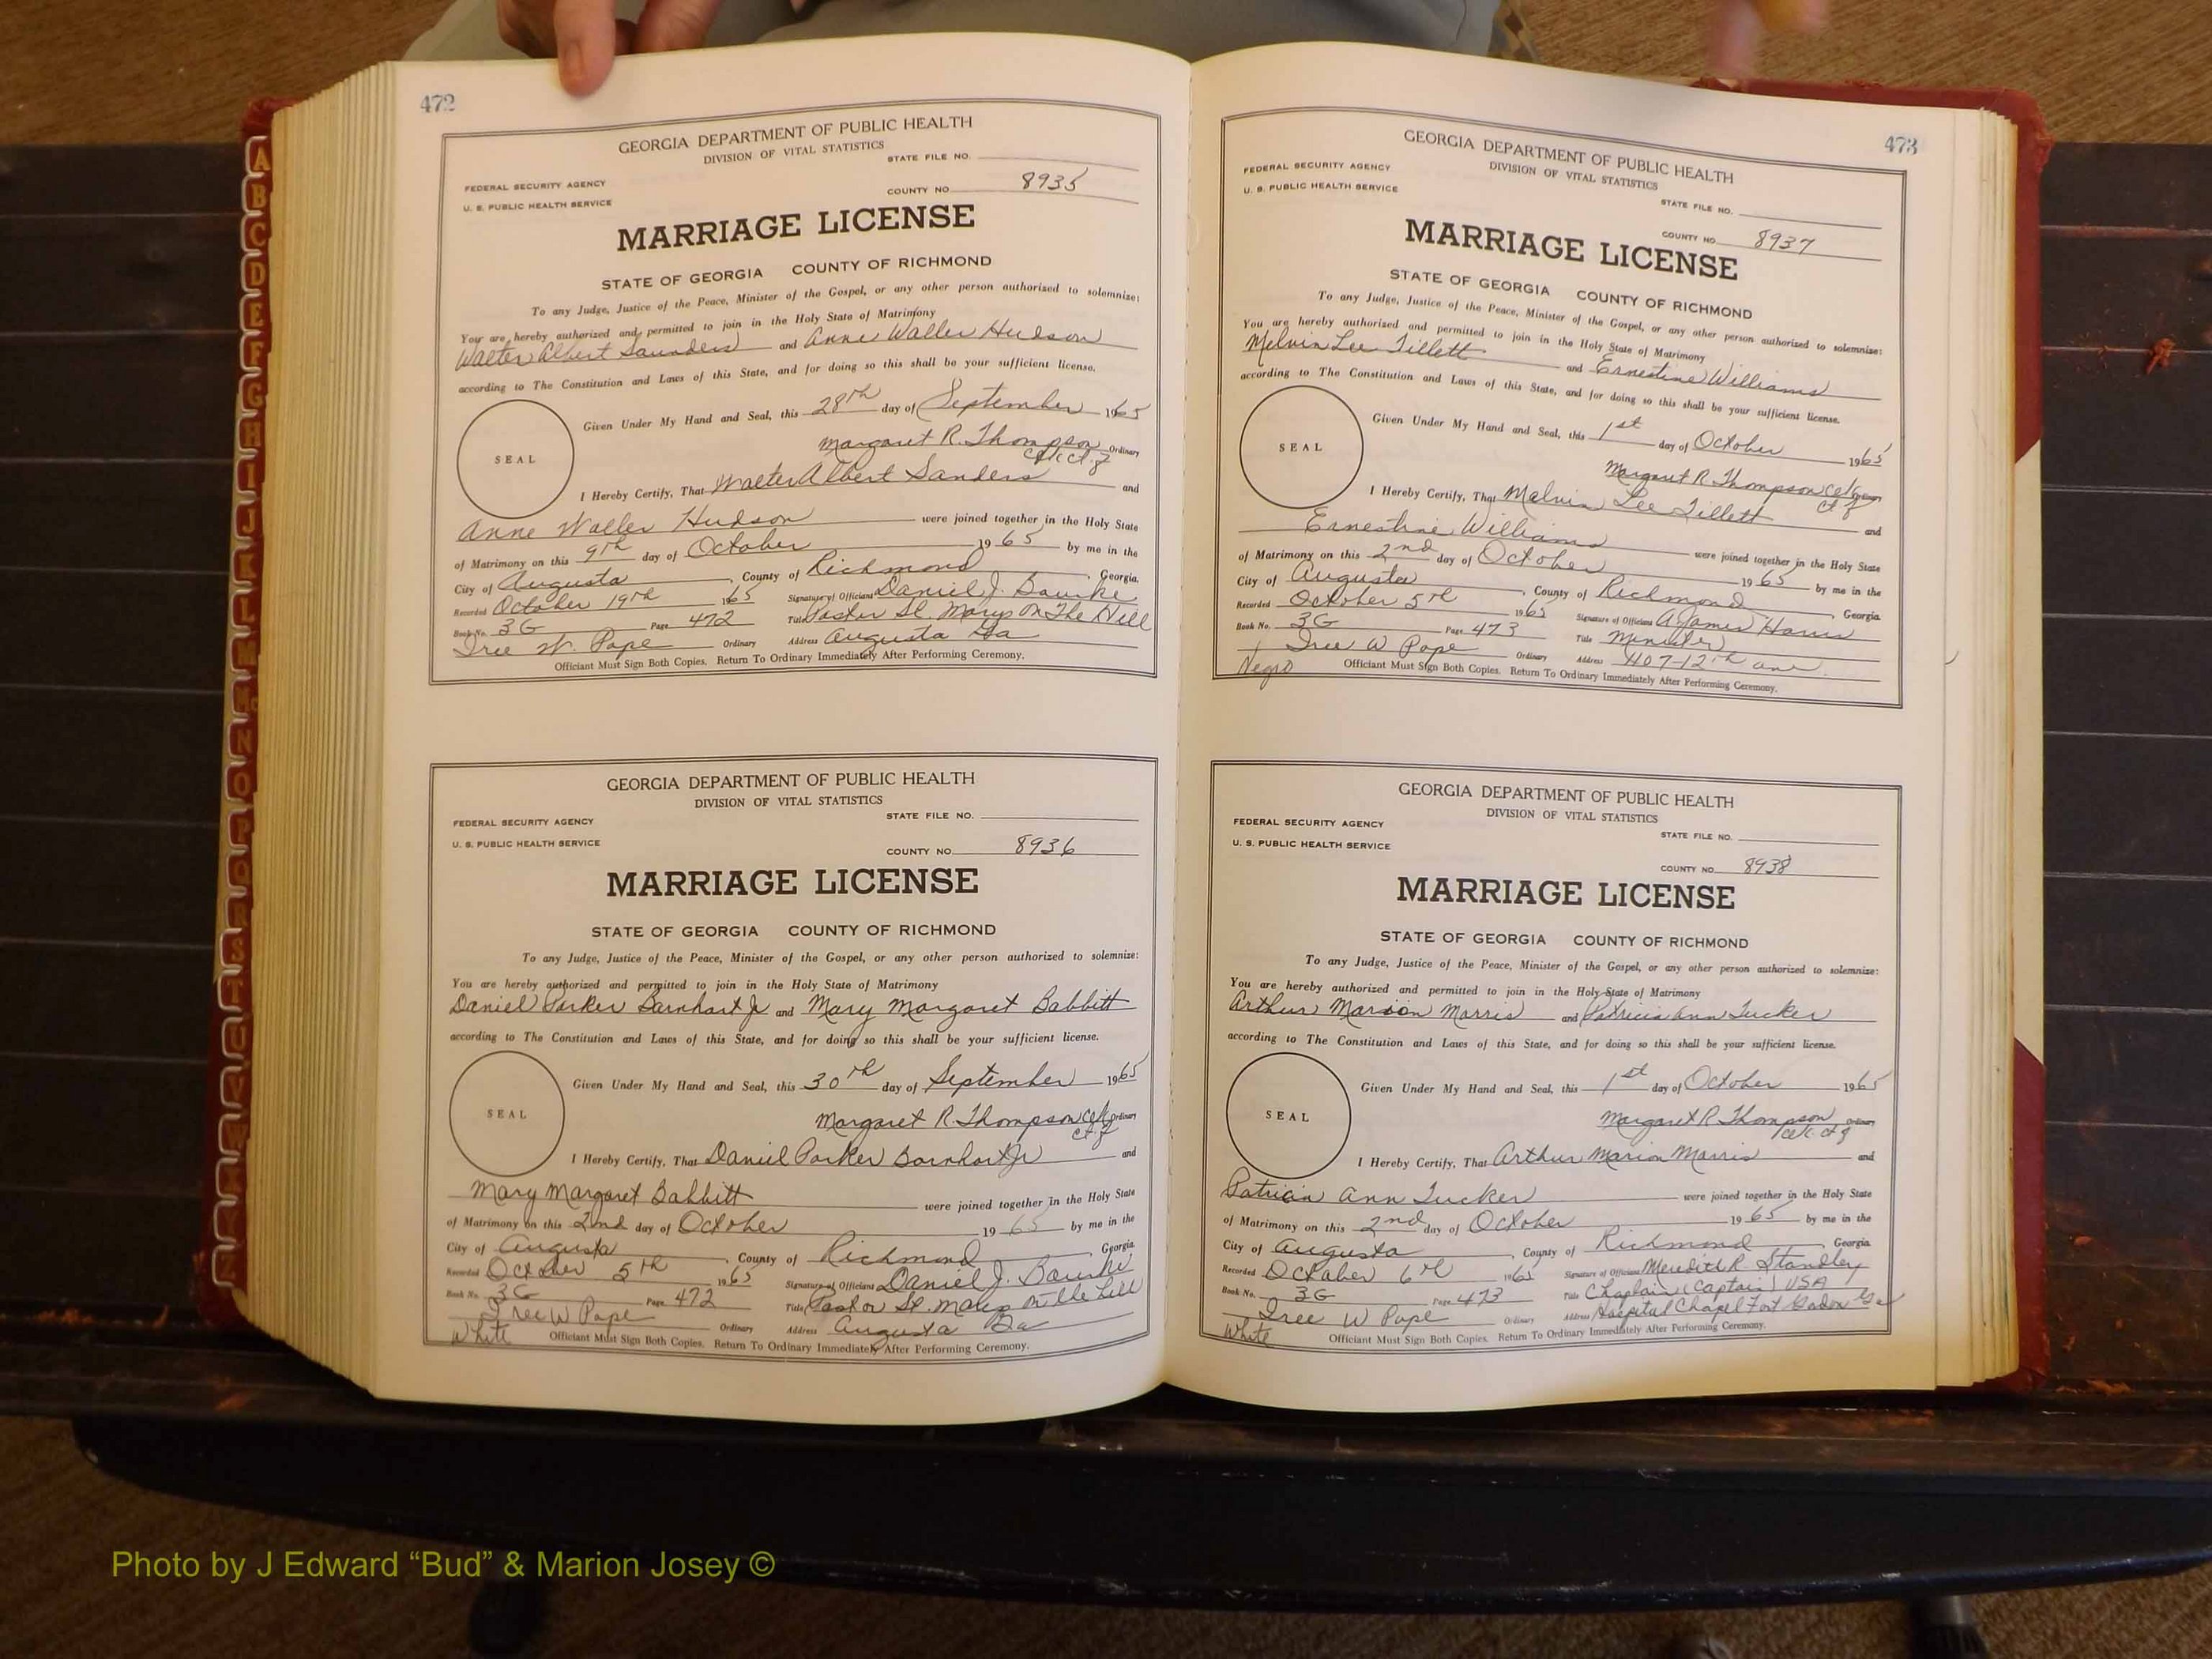 472
GEORGIA DEPARTMENT OF PUBLIC HEALTH
DIVISION OF VITAL STATISTICS
STATE FILE NO.
FEDERAL SECURITY AGENCY
COUNTY NO. 8935
U. S. PUBLIC HEALTH SERVICE
MARRIAGE LICENSE
STATE OF GEORGIA COUNTY OF RICHMOND
To any Judge, Justice of the Peace, Minister of the Gospel, or any other person authorized to solemnize:
You are hereby authorized and permitted to join in the Holy State of Matrimony
Walter Albert Saunders and Anne Waller Hudson
according to The Constitution and Laws of this State, and for doing so this shall be your sufficient license.
Given Under My Hand and Seal, this 28th day of September 1965
SEAL
Margaret R. Thompson Ordinary
I Hereby Certify, That Walter Albert Sanders and
Anne Waller Hudson were joined together in the Holy State
of Matrimony on this 9th day of October 1965 by me in the
City of Augusta, County of Richmond, Georgia.
Recorded October 19th 1965 Signature of Officiant Daniel J. Bourke
Book No. 3G Page 472 Title Pastor St. Marys on The Hill
Iree W. Pope Ordinary Address Augusta Ga
Officiant Must Sign Both Copies. Return To Ordinary Immediately After Performing Ceremony.
GEORGIA DEPARTMENT OF PUBLIC HEALTH
DIVISION OF VITAL STATISTICS
STATE FILE NO.
FEDERAL SECURITY AGENCY
U. S. PUBLIC HEALTH SERVICE
COUNTY NO. 8936
MARRIAGE LICENSE
STATE OF GEORGIA COUNTY OF RICHMOND
To any Judge, Justice of the Peace, Minister of the Gospel, or any other person authorized to solemnize:
You are hereby authorized and permitted to join in the Holy State of Matrimony
Daniel Parker Barnhart Jr and Mary Margaret Babbitt
according to The Constitution and Laws of this State, and for doing so this shall be your sufficient license.
Given Under My Hand and Seal, this 30th day of September 1965
SEAL
Margaret R. Thompson Clk Ordinary
I Hereby Certify, That Daniel Parker Barnhart Jr and
Mary Margaret Babbitt were joined together in the Holy State
of Matrimony on this 2nd day of October 1965 by me in the
City of Augusta, County of Richmond, Georgia
Recorded October 5th 1965 Signature of Officiant Daniel J. Bourke
Book No. 3G Page 472 Title Pastor St. Marys on the hill
Iree W Pope Ordinary Address Augusta Ga
White Officiant Must Sign Both Copies. Return To Ordinary Immediately After Performing Ceremony.
473
GEORGIA DEPARTMENT OF PUBLIC HEALTH
DIVISION OF VITAL STATISTICS
FEDERAL SECURITY AGENCY
U. S. PUBLIC HEALTH SERVICE
STATE FILE NO.
COUNTY NO. 8937
MARRIAGE LICENSE
STATE OF GEORGIA COUNTY OF RICHMOND
To any Judge, Justice of the Peace, Minister of the Gospel, or any other person authorized to solemnize:
You are hereby authorized and permitted to join in the Holy State of Matrimony
Melvin Lee Tillett and Ernestine Williams
according to The Constitution and Laws of this State, and for doing so this shall be your sufficient license.
Given Under My Hand and Seal, this 1st day of October 1965
SEAL
Margaret R. Thompson Clk Ordinary
I Hereby Certify, That Melvin Lee Tillett and
Ernestine Williams were joined together in the Holy State
of Matrimony on this 2nd day of October 1965 by me in the
City of Augusta, County of Richmond, Georgia.
Recorded October 5th 1965 Signature of Officiant A James Harris
Book No. 3G Page 473 Title Minister
Iree W Pope Ordinary Address 1107-12th ave.
Negro Officiant Must Sign Both Copies. Return To Ordinary Immediately After Performing Ceremony.
GEORGIA DEPARTMENT OF PUBLIC HEALTH
DIVISION OF VITAL STATISTICS
FEDERAL SECURITY AGENCY
STATE FILE NO.
U. S. PUBLIC HEALTH SERVICE
COUNTY NO. 8938
MARRIAGE LICENSE
STATE OF GEORGIA COUNTY OF RICHMOND
To any Judge, Justice of the Peace, Minister of the Gospel, or any other person authorized to solemnize:
You are hereby authorized and permitted to join in the Holy State of Matrimony
Arthur Marion Morris and Patricia Ann Tucker
according to The Constitution and Laws of this State, and for doing so this shall be your sufficient license.
Given Under My Hand and Seal, this 1st day of October 1965
SEAL
Margaret R. Thompson Ordinary
I Hereby Certify, That Arthur Marion Morris and
Patricia Ann Tucker were joined together in the Holy State
of Matrimony on this 2nd day of October 1965 by me in the
City of Augusta, County of Richmond, Georgia
Recorded October 6th 1965 Signature of Officiant Meredith R Standley
Book No. 3G Page 473 Title Chaplain (Captain) USA
Iree W Pope Ordinary Address Hospital Chapel Fort Gordon Ga
White Officiant Must Sign Both Copies. Return To Ordinary Immediately After Performing Ceremony.
Photo by J Edward “Bud” & Marion Josey ©